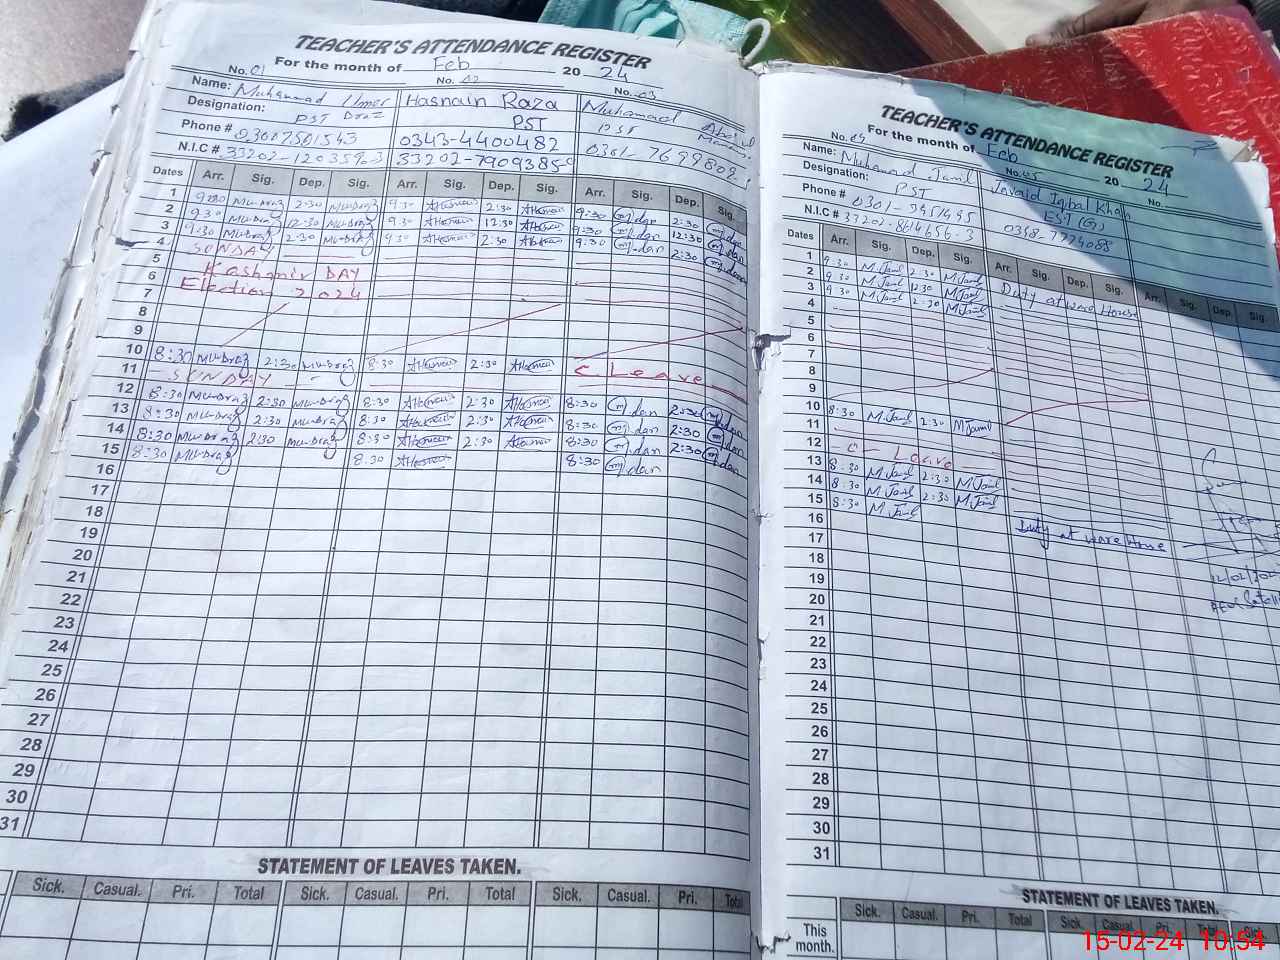 TEACHER'S ATTENDANCE REGISTER
For the month of Feb 20 24
No. 01 No. 02 No. 03
Name: Muhammad Umer Draz Hasnain Raza Muhammad
Designation: PST PST PST
Phone # 03007501543 0343-4400482
N.I.C # 33202-7909385
Dates Arr. Sig. Dep. Sig. Arr. Sig. Dep. Sig. Arr. Sig. Dep. Sig.
1 9:30 Mu-Draz 2:30 Mu-Draz 9:30 AHasnain 2:30 AHasnain 9:30 m.dan 2:30 m.dan
2 9:30 Mu-Draz 12:30 Mu-Draz 9:30 AHasnain 12:30 AHasnain 9:30 m.dan 12:30 m.dan
3 9:30 Mu-Draz 2:30 Mu-Draz 9:30 AHasnain 2:30 AHasnain 9:30 m.dan 2:30 m.dan
4 SUNDAY
5 Kashmir DAY
6 Election 2024
7
8
9
10 8:30 Mu-Draz 2:30 Mu-Draz 8:30 AHasnain 2:30 AHasnain C Leave
11 SUNDAY
12 8:30 Mu-Draz 2:30 Mu-Draz 8:30 AHasnain 2:30 AHasnain 8:30 m.dan 2:30 m.dan
13 8:30 Mu-Draz 2:30 Mu-Draz 8:30 AHasnain 2:30 AHasnain 8:30 m.dan 2:30 m.dan
14 8:30 Mu-Draz 2:30 Mu-Draz 8:30 AHasnain 2:30 AHasnain 8:30 m.dan 2:30 m.dan
15 8:30 Mu-Draz 8:30 AHasnain 8:30 m.dan
16
17
18
19
20
21
22
23
24
25
26
27
28
29
30
31
STATEMENT OF LEAVES TAKEN.
Sick. Casual. Pri. Total Sick. Casual. Pri. Total Sick. Casual. Pri. Total
TEACHER'S ATTENDANCE REGISTER
For the month of Feb 20 24
No. 04 No. 05 No.
Name: Muhammad Jamil Javaid Iqbal Khan
Designation: PST EST (G)
Phone # 0301-
N.I.C # 37202-8614656-3
Dates Arr. Sig. Dep. Sig. Arr. Sig. Dep. Sig. Arr. Sig. Dep. Sig.
1 9:30 M.Jamil 2:30 M.Jamil Duty at ware House
2 9:30 M.Jamil 12:30 M.Jamil
3 9:30 M.Jamil 2:30 M.Jamil
4
5
6
7
8
9
10 8:30 M.Jamil 2:30 M.Jamil
11
12 C- Leave
13 8:30 M.Jamil 2:30 M.Jamil
14 8:30 M.Jamil 2:30 M.Jamil
15 8:30 M.Jamil
16 Duty at ware House
17
18
19
20
21
22
23
24
25
26
27
28
29
30
31
STATEMENT OF LEAVES TAKEN.
Sick. Casual. Pri. Total Sick. Casual. Pri. Total Sick.
This month.
15-02-24 10:54